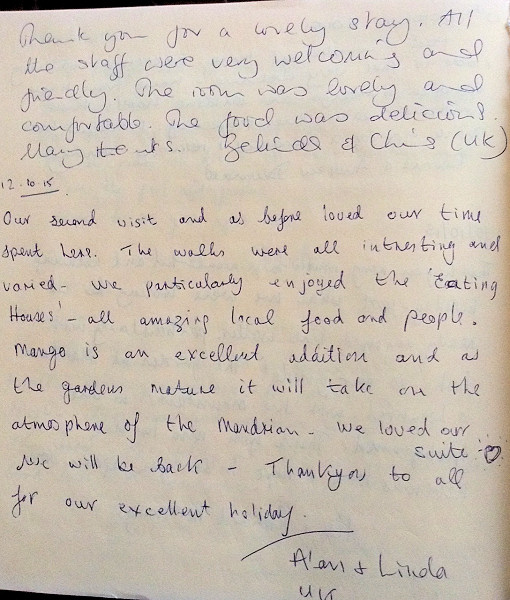 Thank you for a lovely stay. All
the staff were very welcoming and
friendly. The room was lovely and
comfortable. The food was delicious.
Many thanks. Belinda & Chris (UK)
12.10.15
Our second visit and as before loved our time
spent here. The walks were all intresting and
varied - we particularly enjoyed the 'Eating
Houses' - all amazing local food and people.
Mango is an excellent addition and as
the gardens mature it will take on the
atmosphere of the Mandrian - we loved our
suite
We will be back - Thankyou to all
for our excellent holiday.
Alan & Linda
UK